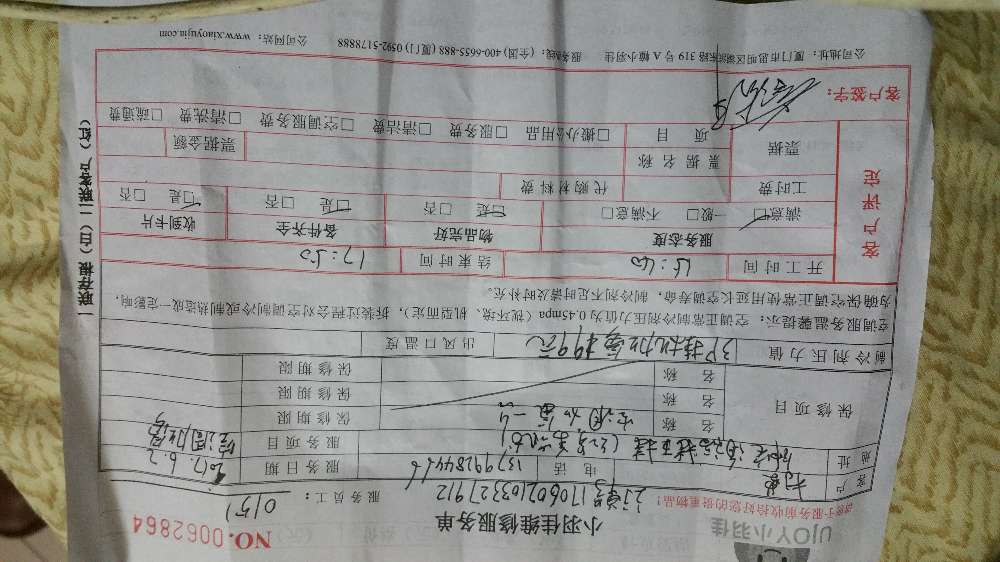 UJOY小羽佳
请您于服务前收拾好您的贵重物品！
小羽佳维修服务单
NO.0062864
170602103327912
服务员工： 0151
客户
电话 13799284466
服务日期 2017.6.2
地址
服务项目 空调加雪
保修项目
名称 空调加雪
保修期限
名称
保修期限
名称
保修期限
制冷剂压力值 3P挂机加雪 499元
出风口温度
空调服务温馨提示：空调正常制冷剂压力值为0.45mpa（视环境、机型而定），拆装过程会对空调制冷或制热造成一定影响，
为确保空调正常使用延长空调寿命，制冷剂不足时请及时补充。
客户评定
开工时间 15:40 结束时间 17:50
服务态度 物品完好 备件齐全 收到卡片
满意□ 一般□ 不满意□ 是□ 否□ 是□ 否□ 是□ 否□
工时费 代购材料费
票据 票据名称 票据金额
项目 □搬办公用品 □服务费 □清洁费 □空调服务费 □清洗费 □疏通费
客户签字：
公司地址：厦门市思明区湖滨东路319号A幢小羽佳 服务热线：(全国) 400-6655-888 (厦门) 0592-5178888 公司网站：www.xiaoyujia.com
一联存根（白）二联客户（红）